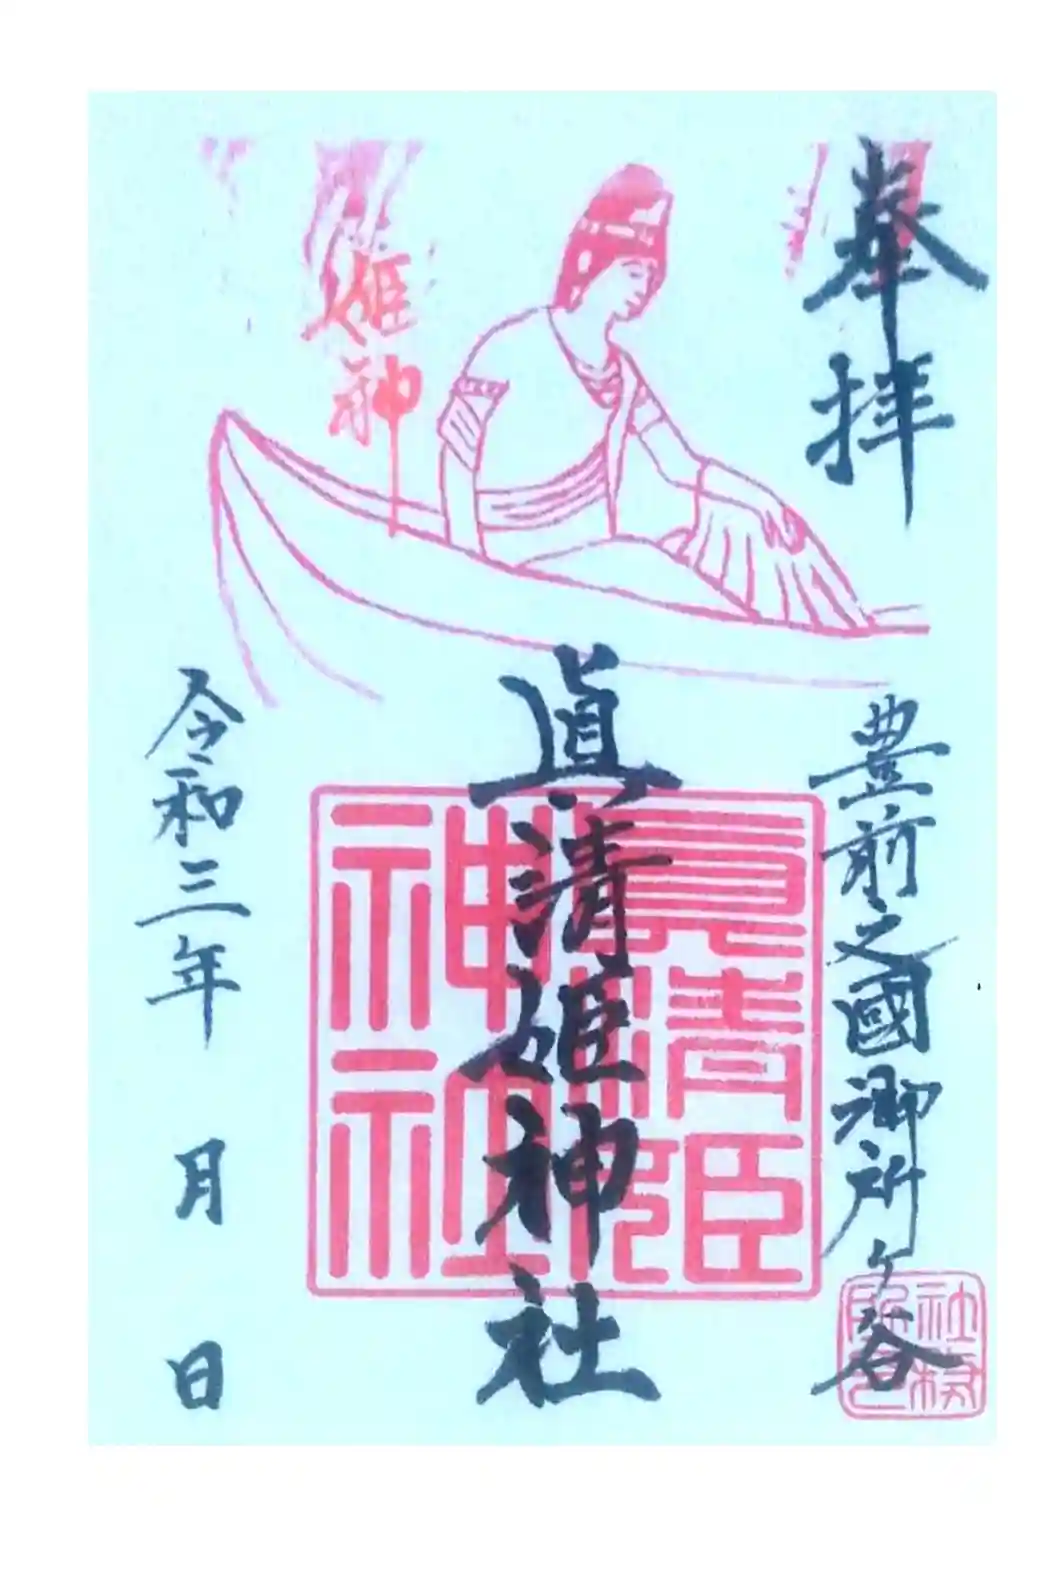 奉拝
豊前之國御所ヶ谷
社務
眞清姫神社
真清姫
神社
姫神
令和三年 月 日